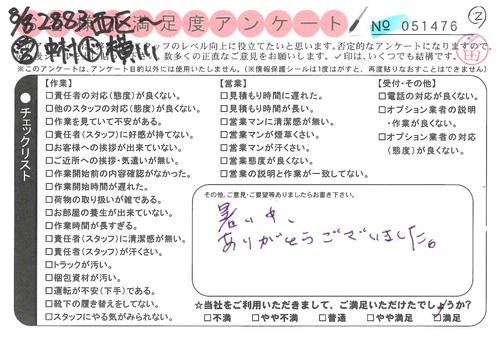 8/8 2883 西区〜
満足度アンケート
№ 051476
②
スタッフのレベル向上に役立てたいと思います。否定的なアンケートになりますので、
数多くの正直なご意見をお願いします。✓印は、いくつでも結構です。
※このアンケートは、アンケート目的以外には使用いたしません。(※情報保護シールは1度はがすと、再度貼りなおすことはできません)
●チェックリスト
【作業】
□責任者の対応(態度)が良くない。
□他のスタッフの対応(態度)が良くない。
□作業を見ていて不安がある。
□責任者(スタッフ)に好感が持てない。
□お客様への挨拶が出来ていない。
□ご近所への挨拶・気遣いが無い。
□作業開始前の内容確認がなかった。
□作業開始時間が遅れた。
□荷物の取り扱いが雑である。
□お部屋の養生が出来ていない。
□作業時間が長すぎる。
□責任者(スタッフ)に清潔感が無い。
□責任者(スタッフ)が汗くさい。
□トラックが汚い。
□梱包資材が汚い。
□運転が不安(下手)である。
□靴下の履き替えをしてない。
□スタッフにやる気がみられない。
【営業】
□見積もり時間に遅れた。
□見積もり時間が長い。
□営業マンに清潔感が無い。
□営業マンが煙草くさい。
□営業マンが汗くさい。
□営業態度が良くない。
□営業の説明と作業が一致してない。
【受付・その他】
□電話の対応が良くない。
□オプション業者の説明
・作業が良くない。
□オプション業者の対応
(態度)が良くない。
その他、ご意見・ご要望等ありましたらお書き下さい。
暑い中、
ありがとうございました。
☆当社をご利用いただきまして、ご満足いただけたでしょうか?
□不満 □やや不満 □普通 □やや満足 ☑満足